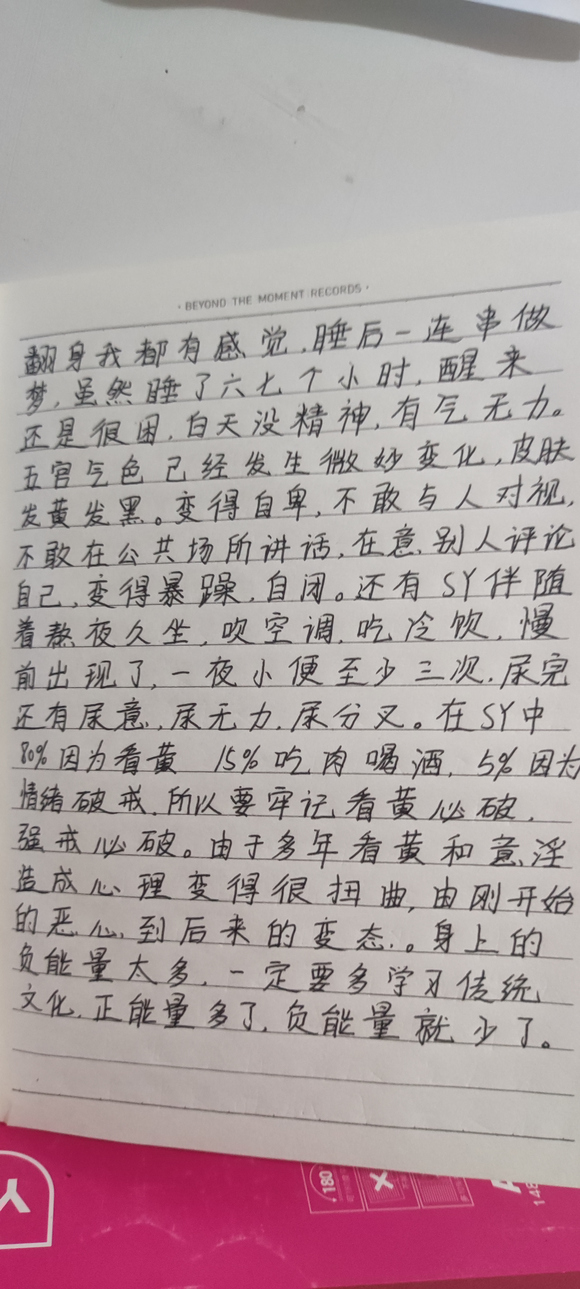 · BEYOND THE MOMENT RECORDS ·
翻身我都有感觉,睡后一连串做
梦,虽然睡了六七个小时,醒来
还是很困,白天没精神,有气无力。
五官气色已经发生微妙变化,皮肤
发黄发黑。变得自卑,不敢与人对视,
不敢在公共场所讲话,在意别人评论
自己,变得暴躁,自闭。还有SY伴随
着熬夜久坐,吹空调,吃冷饮,慢
前出现了,一夜小便至少三次,尿完
还有尿意,尿无力,尿分叉。在SY中
80%因为看黄 15%吃肉喝酒,5%因为
情绪破戒,所以要牢记看黄必破,
强戒必破。由于多年看黄和意淫
造成心理变得很扭曲,由刚开始
的恶心,到后来的变态。身上的
负能量太多,一定要多学习传统
文化,正能量多了,负能量就少了。
180
148